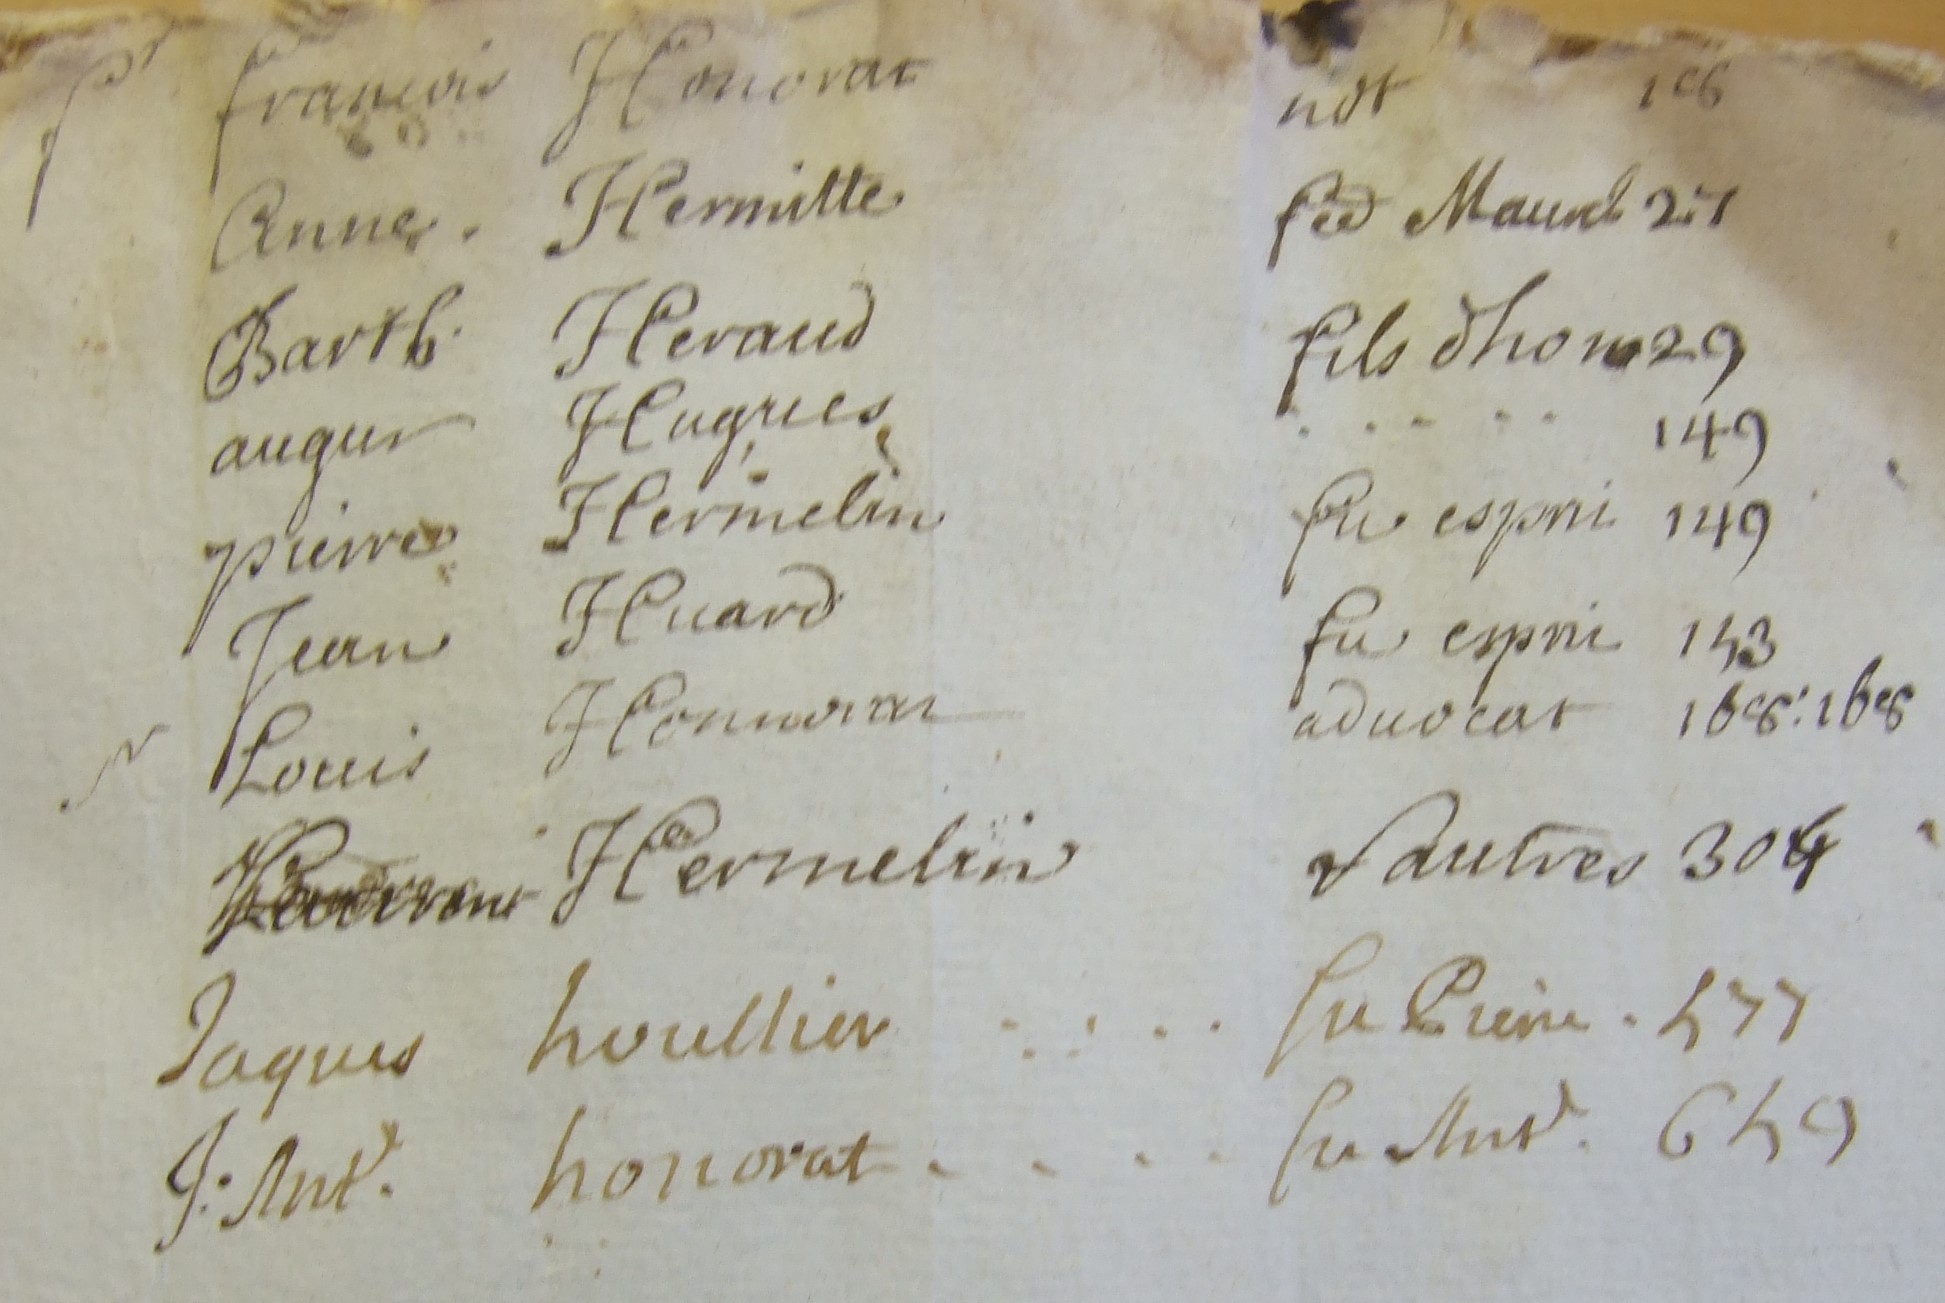 françois Honorat not
Anne. Hermitte
Barth. Heraud fils dhon 29
augun Hugues ..... 149
pierre Hermelin fu espri 149
Jean Huard fu espri 143
Louis Honnorat advocat
Hermelin & autres 304
Jaques houllier .... fu Pierre. 477
J: Ant. honorat .... fu Ant. 649